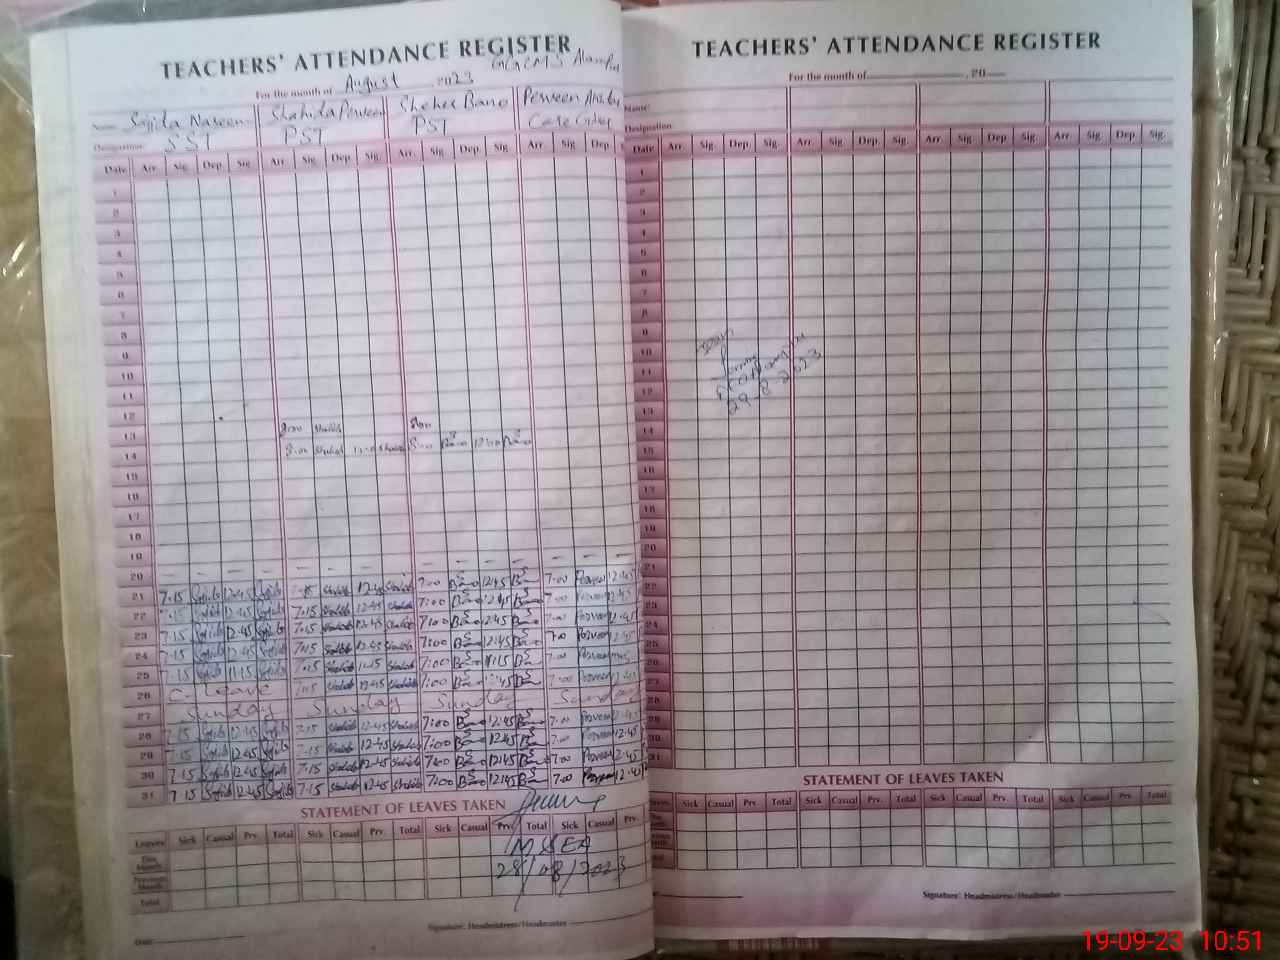 TEACHERS' ATTENDANCE REGISTER
GGCMS
For the month of August 2023
Name Sajida Naseem Shahida Perveen Sheher Bano Perveen
Designation SST PST PST Care Giver
Date Arr. Sig. Dep. Sig. Arr. Sig. Dep. Sig. Arr. Sig. Dep. Sig. Arr. Sig. Dep.
1
2
3
4
5
6
7
8
9
10
11
12
13 8:00 Shahida 8:00
14 8:00 Shahida 12:00 Shahida 8:00 Bano 12:00 Bano
15
16
17
18
19
20
21 7.15 Sajida 12.45 Sajida 7.15 Shahida 12.45 Shahida 7:00 Bano 12:45 Bano 7.00 Perveen 12.45
22 7.15 Sajida 12.45 Sajida 7.15 Shahida 12.45 Shahida 7:00 Bano 12:45 Bano 7.00 Perveen 12.45
23 7.15 Sajida 12.45 Sajida 7.15 Shahida 12.45 Shahida 7:00 Bano 12:45 Bano 7.00 Perveen 12.45
24 7.15 Sajida 12.45 Sajida 7.15 Shahida 12.45 Shahida 7:00 Bano 12:45 Bano 7.00 Perveen 12.45
25 7.15 Sajida 11.15 Sajida 7.15 Shahida 11.15 Shahida 7:00 Bano 11:15 Bano 7.00 Perveen
26 C. Leave 7.15 Shahida 12.45 Shahida 7:00 Bano 12:45 Bano 7.00 Perveen 12.45
27 Sunday Sunday Sunday Sunday
28 7.15 Sajida 12.45 Sajida 7.15 Shahida 12.45 Shahida 7:00 Bano 12:45 Bano 7.00 Perveen 12.45
29 7.15 Sajida 12.45 Sajida 7.15 Shahida 12.45 Shahida 7:00 Bano 12:45 Bano 7.00 Perveen 12.45
30 7.15 Sajida 12.45 Sajida 7.15 Shahida 12.45 Shahida 7:00 Bano 12:45 Bano 7.00 Perveen 12.45
31 7.15 Sajida 12.45 Sajida 7.15 Shahida 12.45 Shahida 7:00 Bano 12:45 Bano 7.00 Perveen 12.45
STATEMENT OF LEAVES TAKEN
Leaves Sick Casual Prv. Total Sick Casual Prv. Total Sick Casual Prv. Total Sick Casual Prv.
This Month
Previous Month
Total
MEA
28/08/2023
Signature: Headmistress/Headmaster
Date:
TEACHERS' ATTENDANCE REGISTER
For the month of , 20
Name:
Designation
Date Arr. Sig. Dep. Sig. Arr. Sig. Dep. Sig. Arr. Sig. Dep. Sig. Arr. Sig. Dep. Sig.
1
2
3
4
5
6
7
8
9
10
11
12
13
14
15
16
17
18
19
20
21
22
23
24
25
26
27
28
29
30
31
29-8-2023
STATEMENT OF LEAVES TAKEN
Leaves Sick Casual Prv. Total Sick Casual Prv. Total Sick Casual Prv. Total Sick Casual Prv. Total
Signature: Headmistress/Headmaster
19-09-23 10:51